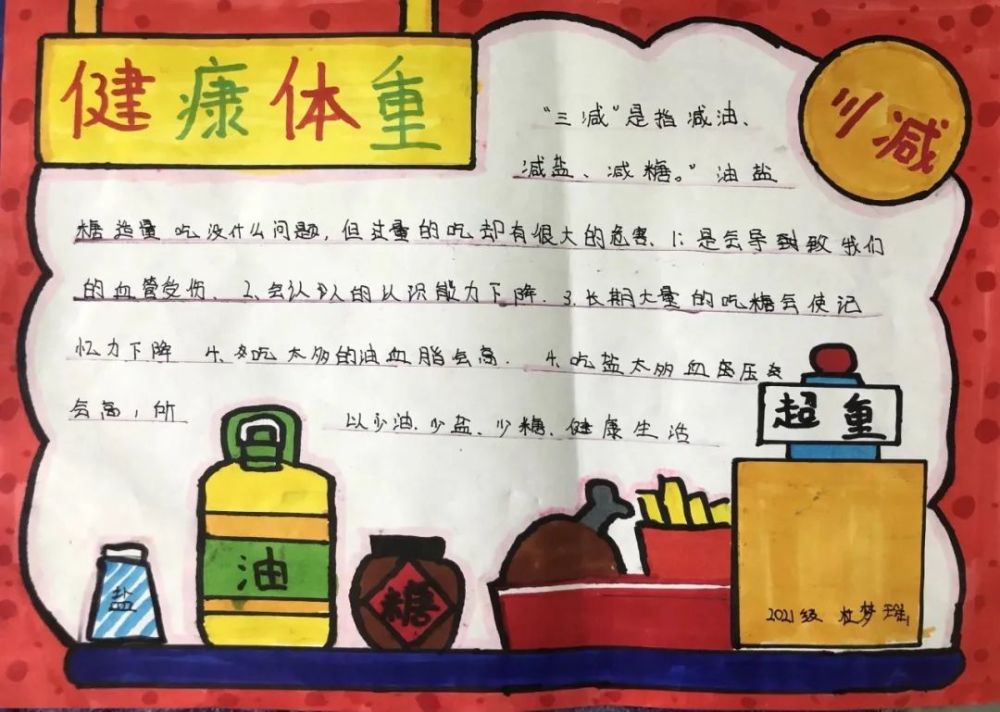 健康体重
三减
"三减"是指减油、
减盐、减糖。"油盐
糖适量吃没什么问题,但过量的吃却有很大的危害、1:是会导到致我们
的血管受伤、2、会认认的认识能力下降.3.长期大量的吃糖会使记
忆力下降 4.多吃太多的油血脂会高. 4.吃盐太多血压压
会高,所 以少油、少盐、少糖、健康生活
超重
盐
油
糖
2021级 梦